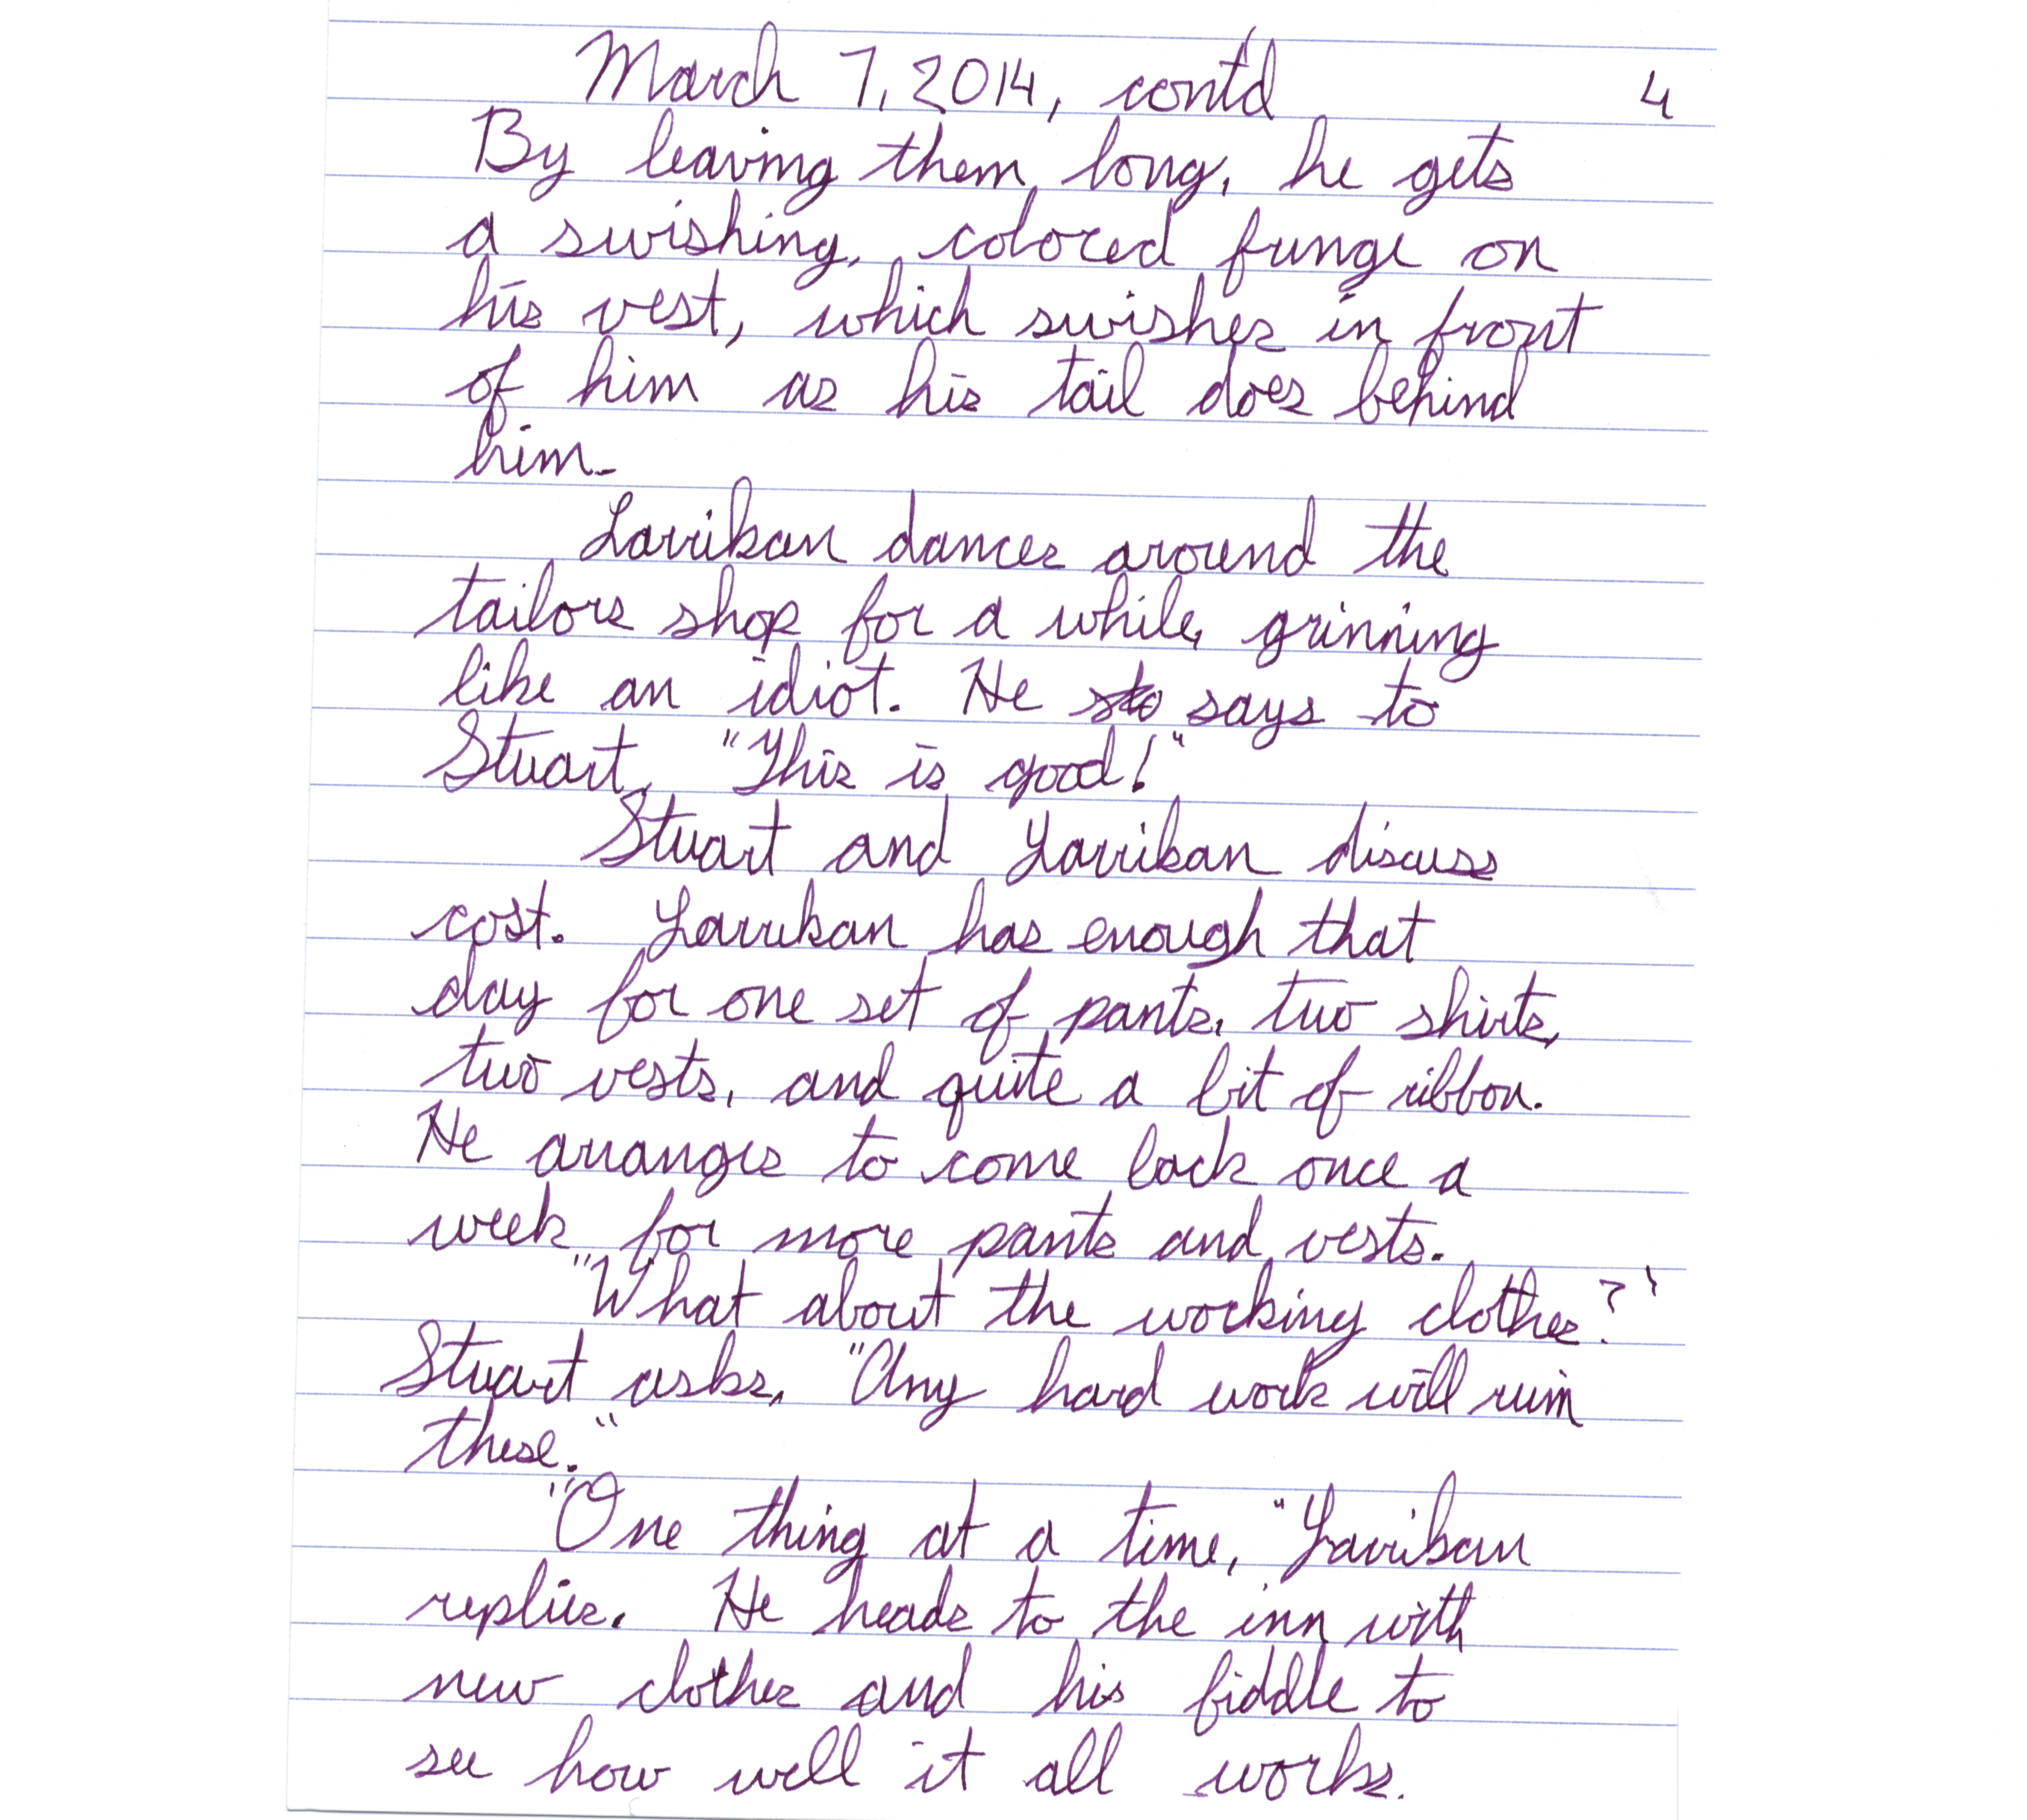 March 7, 2014, cont'd 4
By leaving them long, he gets
a swishing, colored fringe on
his vest, which swishes in front
of him as his tail does behind
him.
Larrikan dances around the
tailors shop for a while, grinning
like an idiot. He sto says to
Stuart, "This is good!"
Stuart and Larrikan discuss
cost. Larrikan has enough that
day for one set of pants, two shirts,
two vests, and quite a bit of ribbon.
He arranges to come back once a
week for more pants and vests.
"What about the working clothes?"
Stuart asks, "Any hard work will ruin
these."
"One thing at a time," Larrikan
replies. He heads to the inn with
new clothes and his fiddle to
see how well it all works.